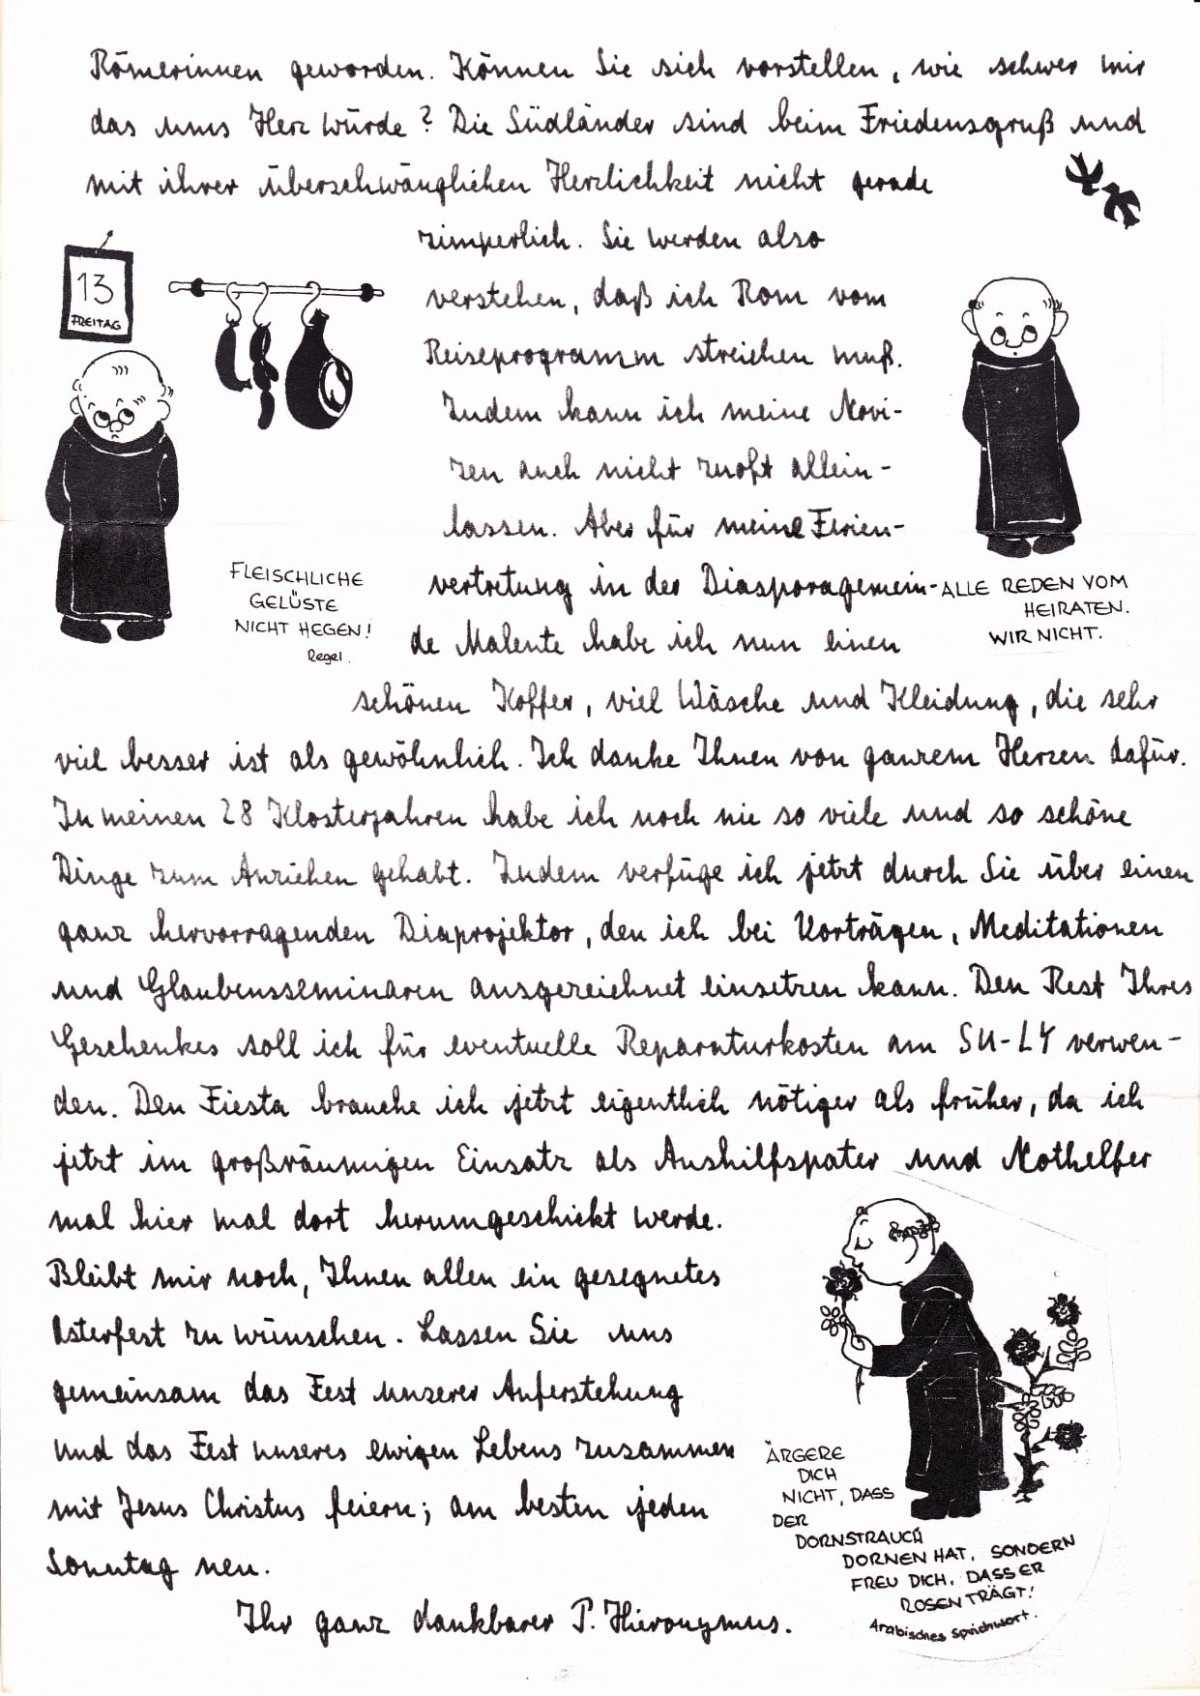 Römerinnen geworden. Können Sie sich vorstellen, wie schwer mir
das ums Herz würde? Die Südländer sind beim Friedensgruß und
mit ihrer überschwänglichen Herzlichkeit nicht gerade
zimperlich. Sie werden also
verstehen, daß ich Rom vom
Reiseprogramm streichen muß.
Zudem kann ich meine Novi-
zen auch nicht zuoft allein-
lassen. Aber für meine Ferien-
vertretung in der Diasporagemein-
de Malente habe ich nun einen
schönen Koffer, viel Wäsche und Kleidung, die sehr
viel besser ist als gewöhnlich. Ich danke Ihnen von ganzem Herzen dafür.
In meinen 28 Klosterjahren habe ich noch nie so viele und so schöne
Dinge zum Anziehen gehabt. Zudem verfüge ich jetzt durch Sie über einen
ganz hervorragenden Diaprojektor, den ich bei Vorträgen, Meditationen
und Glaubensseminaren ausgezeichnet einsetzen kann. Den Rest Ihres
Geschenkes soll ich für eventuelle Reparaturkosten am SU-LY verwen-
den. Den Fiesta brauche ich jetzt eigentlich nötiger als früher, da ich
jetzt im großräumigen Einsatz als Aushilfspater und Nothelfer
mal hier mal dort herumgeschickt werde.
Bleibt mir noch, Ihnen allen ein gesegnetes
Osterfest zu wünschen. Lassen Sie uns
gemeinsam das Fest unserer Auferstehung
und das Fest unseres ewigen Lebens zusammen
mit Jesus Christus feiern; am besten jeden
Sonntag neu.
Ihr ganz dankbarer P. Hieronymus.
13
FREITAG
FLEISCHLICHE
GELÜSTE
NICHT HEGEN!
Regel.
ALLE REDEN VOM
HEIRATEN.
WIR NICHT.
ÄRGERE
DICH
NICHT, DASS
DER
DORNSTRAUCH
DORNEN HAT, SONDERN
FREU DICH, DASS ER
ROSEN TRÄGT!
Arabisches Sprichwort.